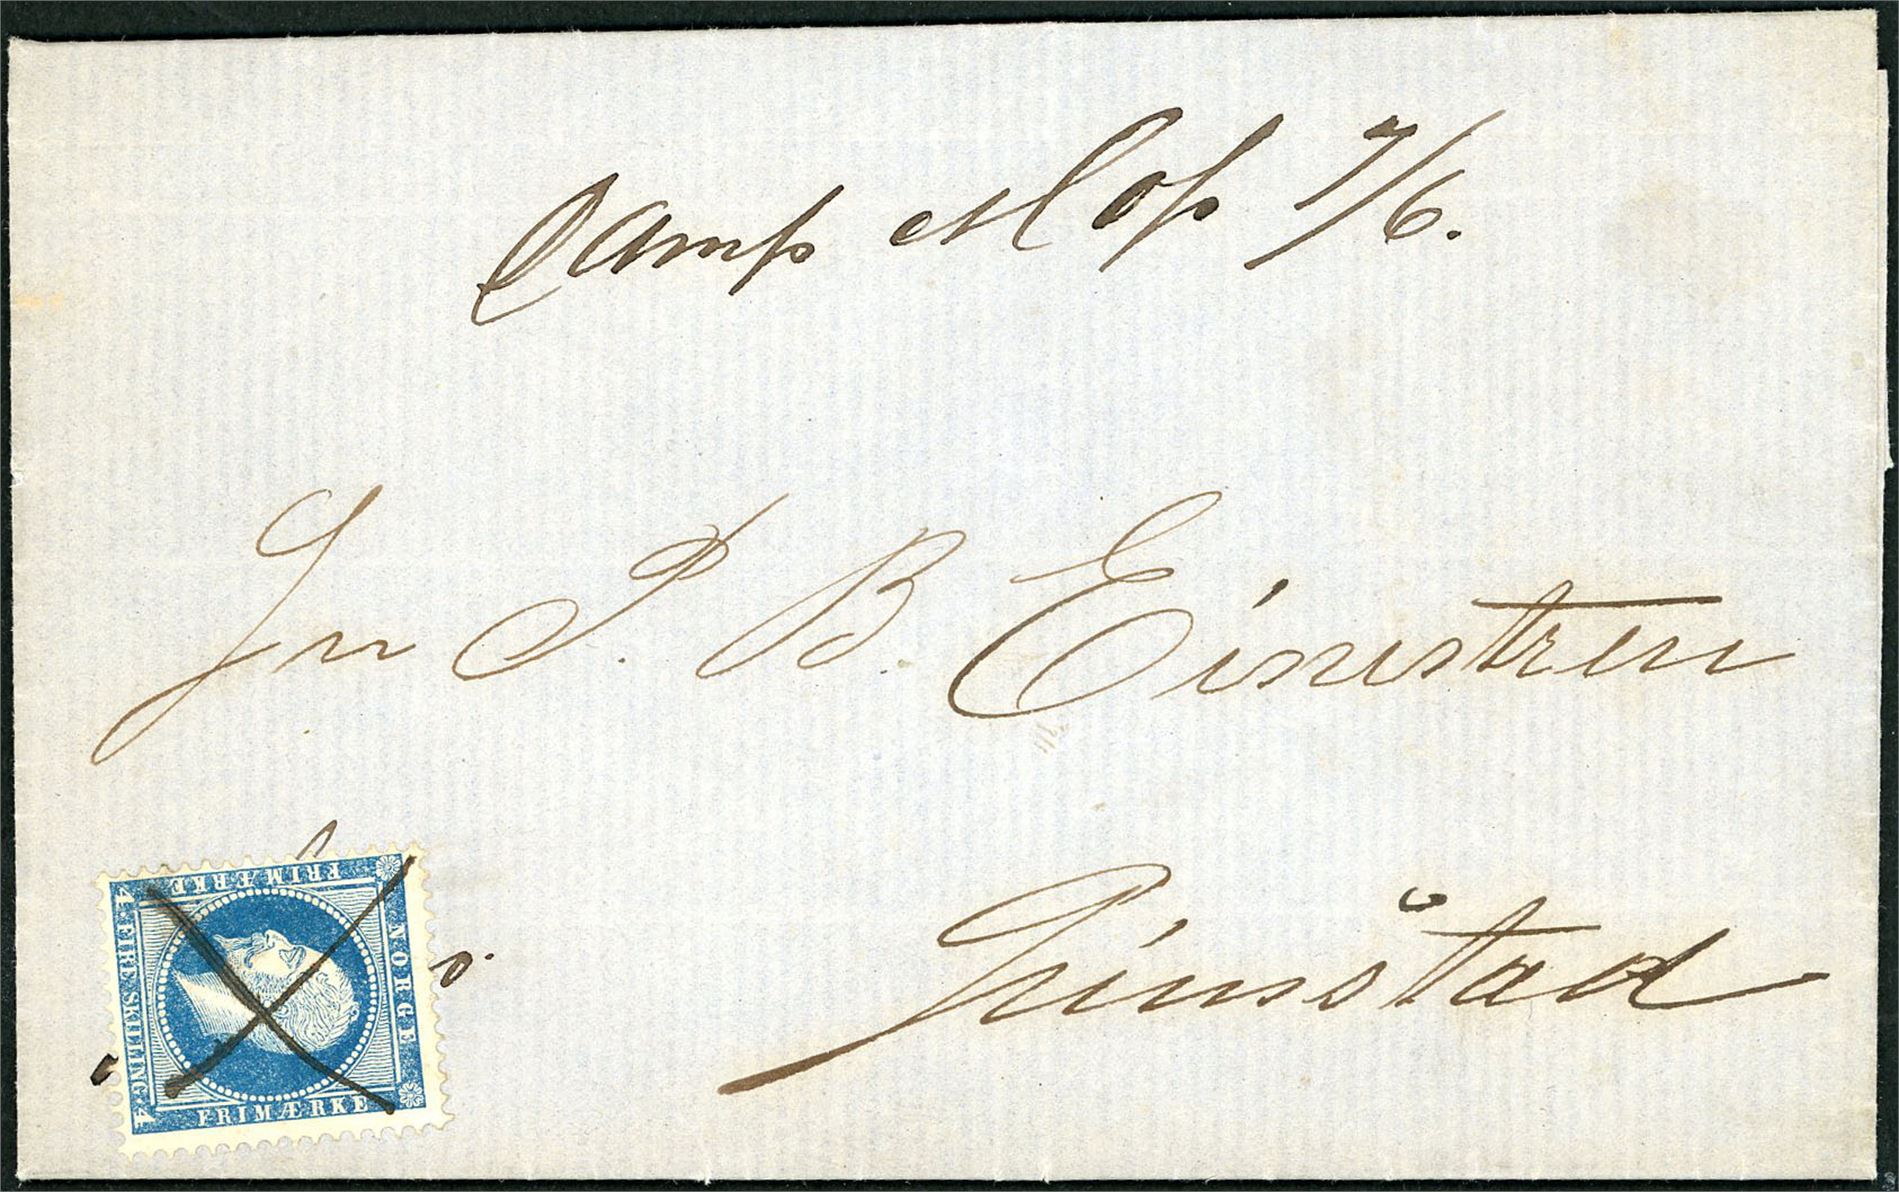 Damp Moss 7/6.
Hr P. B. Einersen
Grimstad
NORGE
FRIMÆRKE
FRIMÆRKE
4. FIRE SKILLING. 4